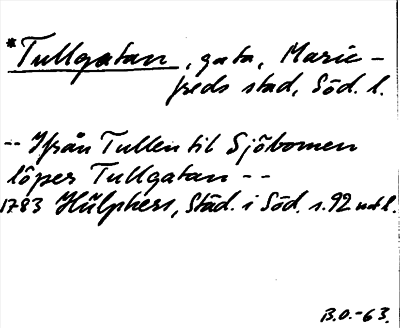 *Tullgatan, gata, Marie-
freds stad, Söd. l.
-- Ifrån Tullen til Sjöbomen
löper Tullgatan --
1783 Hülphers, Städ. i Söd. s. 92 utl.
B.O.-63.